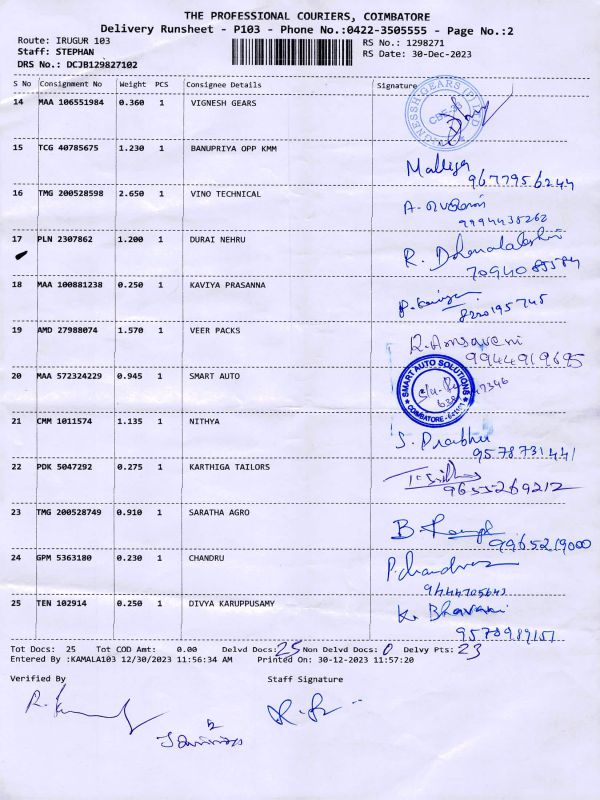 THE PROFESSIONAL COURIERS, COIMBATORE
Delivery Runsheet - P103 - Phone No.:0422-3505555 - Page No.:2
Route: IRUGUR 103 RS No.: 1298271
Staff: STEPHAN RS Date: 30-Dec-2023
DRS No.: DCJB129827102
S No Consignment No Weight PCS Consignee Details Signature
14 MAA 106551984 0.360 1 VIGNESH GEARS
15 TCG 40785675 1.230 1 BANUPRIYA OPP KMM
Malliga 9677956244
16 TMG 200528598 2.650 1 VINO TECHNICAL
9994438262
17 PLN 2307862 1.200 1 DURAI NEHRU
R. Dhanalakshmi
7094085584
18 MAA 100881238 0.250 1 KAVIYA PRASANNA
8220195745
19 AMD 27988074 1.570 1 VEER PACKS
R. Amsaveni
9944919695
20 MAA 572324229 0.945 1 SMART AUTO
SMART AUTO SOLUTIONS
COIMBATORE
21 CMM 1011574 1.135 1 NITHYA
S. Prabhu
9578731441
22 PDK 5047292 0.275 1 KARTHIGA TAILORS
9655269212
23 TMG 200528749 0.910 1 SARATHA AGRO
9965219000
24 GPM 5363180 0.230 1 CHANDRU
P. chandru
25 TEN 102914 0.250 1 DIVYA KARUPPUSAMY
K. Bhavani
Tot Docs: 25 Tot COD Amt: 0.00 Delvd Docs: 25 Non Delvd Docs: 0 Delvy Pts: 23
Entered By :KAMALA103 12/30/2023 11:56:34 AM Printed On: 30-12-2023 11:57:20
Verified By Staff Signature